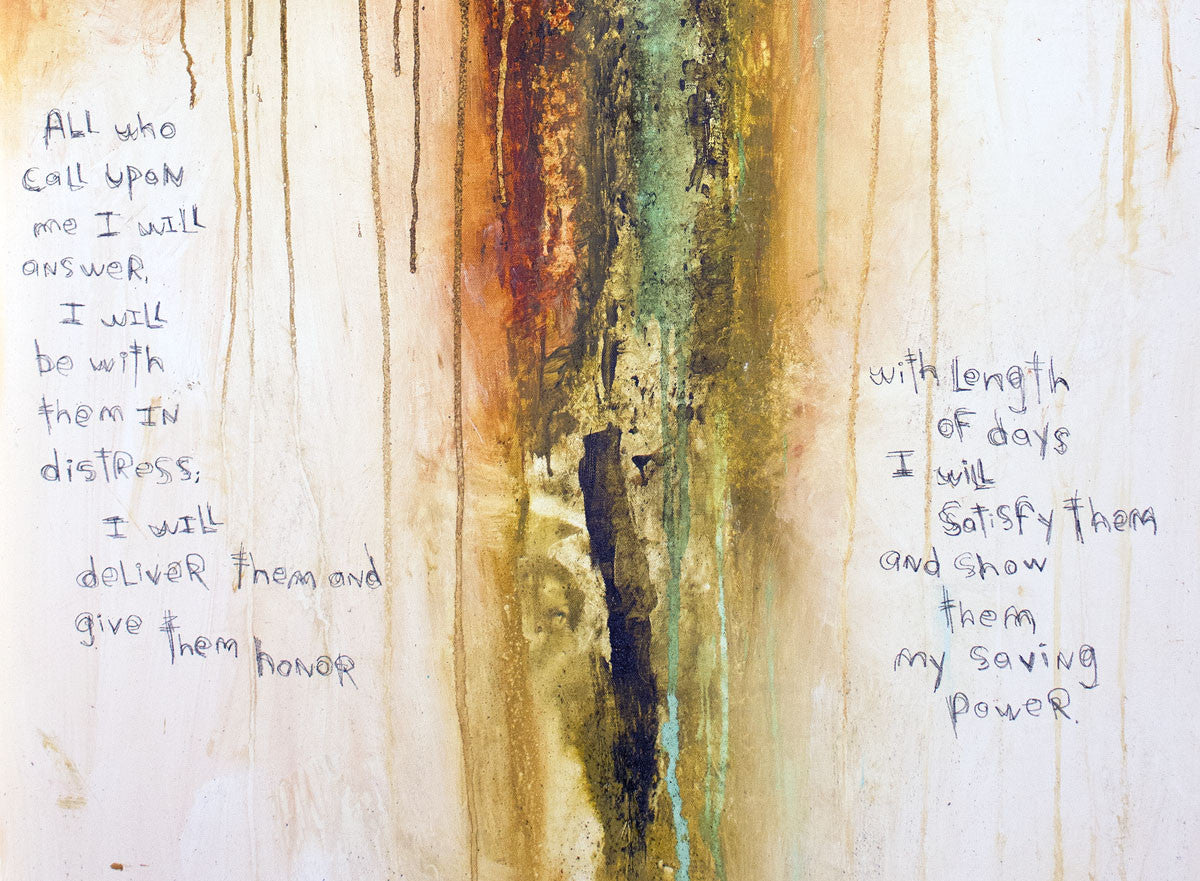 ALL who
call upon
me I will
answer,
I will
be with
them IN
distress;
I will
deliver them and
give them honor
with Length
of days
I will
satisfy them
and show
them
my saving
power.